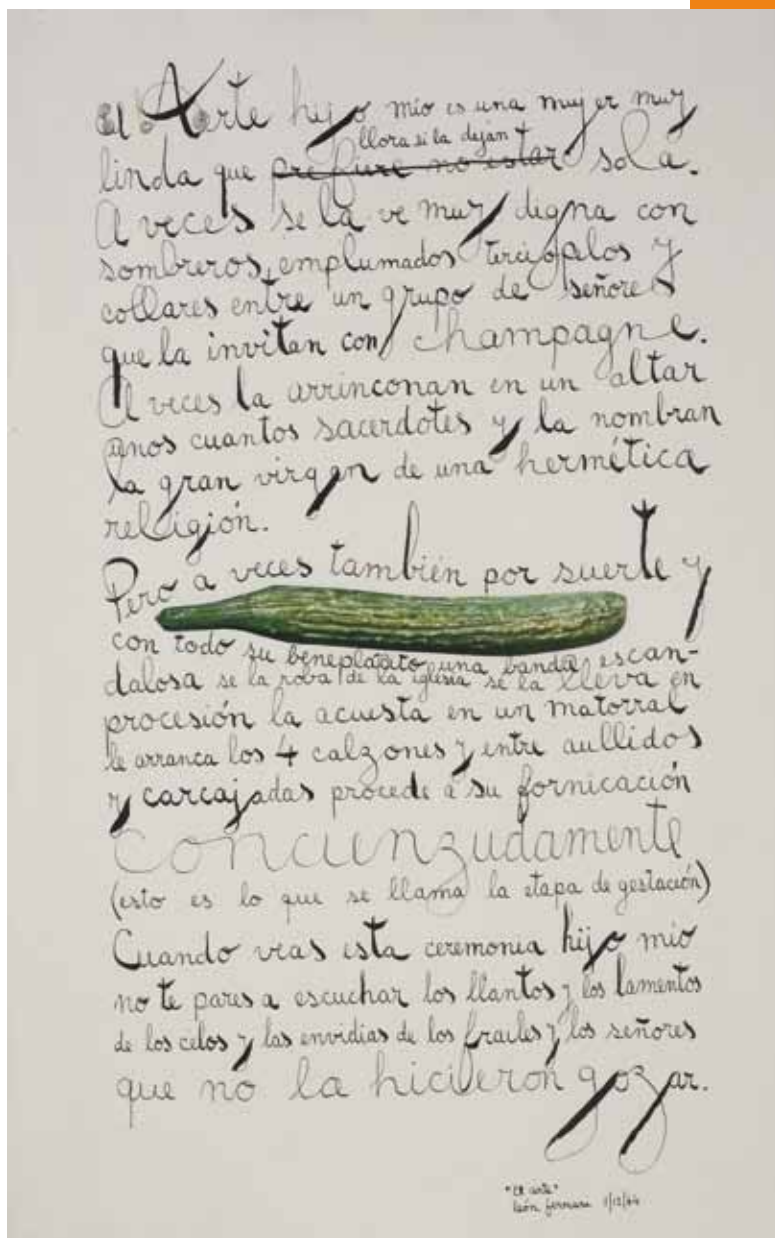 El Arte hijo mío es una mujer muy
llora si la dejan
linda que prefiere no estar sola.
A veces se la ve muy digna con
sombreros emplumados terciopelos y
collares entre un grupo de señores
que la invitan con champagne.
A veces la arrinconan en un altar
unos cuantos sacerdotes y la nombran
la gran virgen de una hermética
religión.
Pero a veces también por suerte y
con todo su beneplácito una banda escan-
dalosa se la roba de la iglesia se la lleva en
procesión la acuesta en un matorral
le arranca los 4 calzones y entre aullidos
y carcajadas procede a su fornicación
concienzudamente
(esto es lo que se llama la etapa de gestación)
Cuando veas esta ceremonia hijo mío
no te pares a escuchar los llantos y los lamentos
de los celos y las envidias de los frailes y los señores
que no la hicieron gozar.
"El arte"
león ferrari 1/12/64